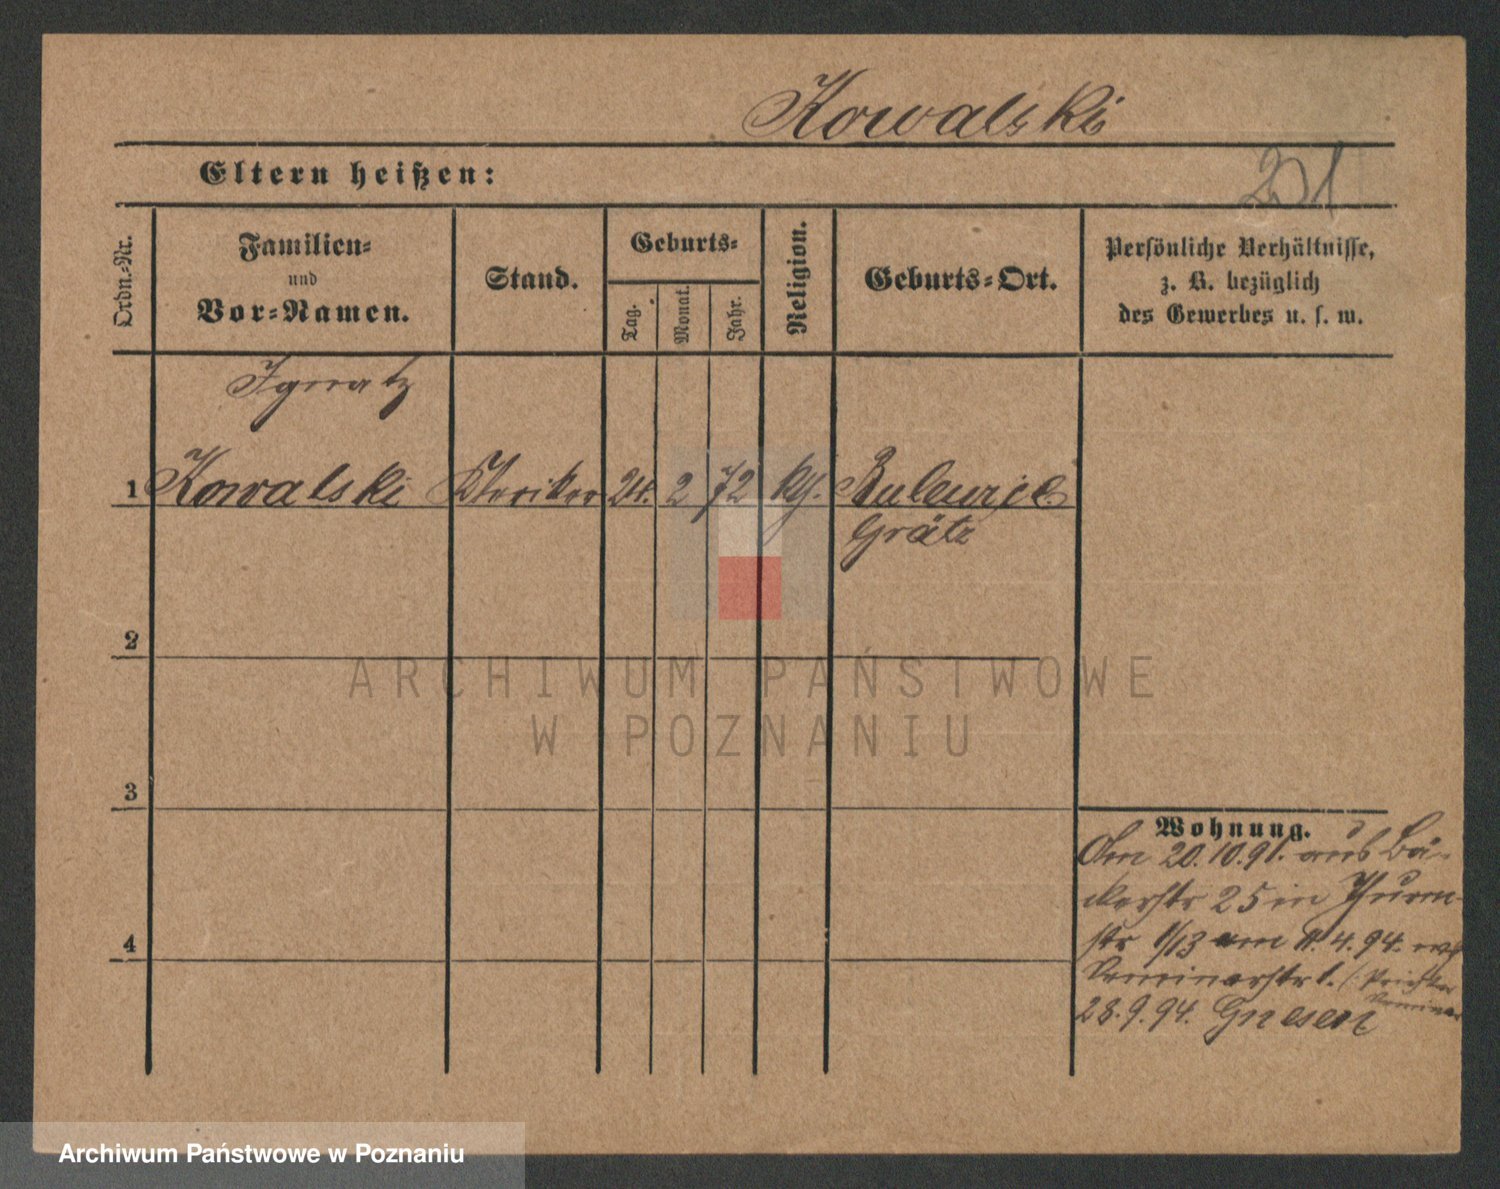 Kowalski
Eltern heißen:
201
Ordn.-Nr.
Familien-
und
Vor-Namen.
Stand.
Geburts-
Tag.
Monat.
Jahr.
Religion.
Geburts-Ort.
Persönliche Verhältnisse,
z. B. bezüglich
des Gewerbes u. s. w.
Ignatz
1 Kowalski Kleriker 24. 2 72 kth.
Grätz
2
ARCHIWUM PAŃSTWOWE
W POZNANIU
3
Wohnung.
Am 20.10.91. aus Bä-
ckerstr 25 in Thurm-
str 1/13 am 11.4.94. nach
Seminarstr 1. (Priester
Seminar
28.9.94. Gnesen
4
Archiwum Państwowe w Poznaniu